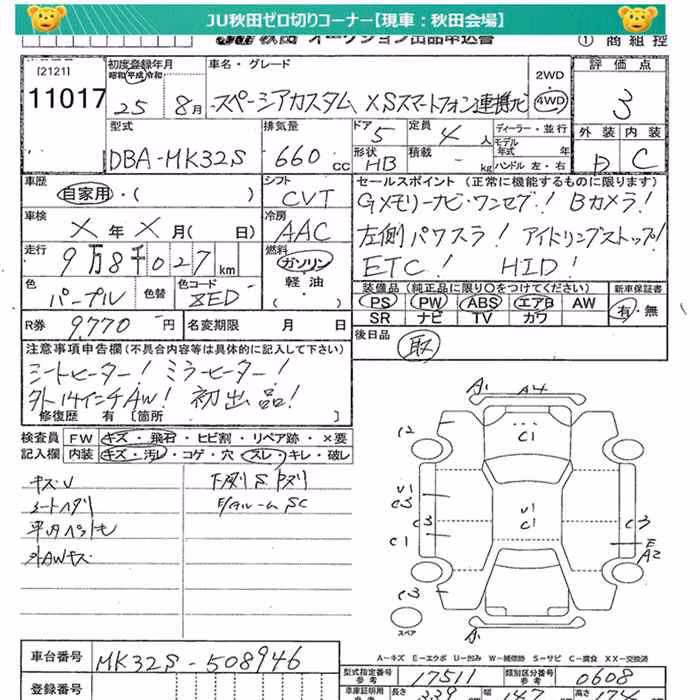 JU秋田ゼロ切りコーナー【現車:秋田会場】
JU 秋田 オークション出品申込書 ① 商組控
[2121]
11017
初度登録年月
昭和 平成 令和
25 8月
車名・グレード
スペーシアカスタム XSスマートフォン連携ナビ
2WD
4WD
評価点
3
外装 内装
D C
型式
DBA-MK32S
排気量
660 CC
ドア 5
形状 HB
定員 4 人
積載 - kg
ディーラー・並行
モデル年式 年
ハンドル 左・右
車歴
自家用・( )
シフト
CVT
セールスポイント (正常に機能するものに限ります)
Gメモリーナビ・ワンセグ! Bカメラ!
左側パワスラ! アイドリングストップ!
ETC! HID!
車検
X 年 X 月( 日)
冷房
AAC
走行
9万8千027 km
燃料
ガソリン
軽油
( )
色
パープル
色替
色コード
ZED
装備品 (純正品に限り○をつけてください)
PS PW ABS エアB AW
SR ナビ TV カワ
新車保証書
有・無
R券 9,770 円
名変期限 月 日
後日品
取
注意事項申告欄 (不具合内容等は具体的に記入して下さい)
シートヒーター! ミラーヒーター!
外14インチAW! 初出品!
修復歴 有 [箇所 ]
検査員 FW キズ・飛石・ヒビ割・リペア跡・×要
記入欄 内装 キズ・汚レ・コゲ・穴・スレ・キレ・破レ
キズU
シートヘタリ
外AWキズ
A1 A4
C2
C1
U1
C3
U1
C1
C3
C1
C3
C3
E
A2
スペア
A-キズ E-エクボ U-凹み W-補修跡 S-サビ C-腐食 XX-交換済
車台番号 MK32S-508946
登録番号
型式指定番号 参考 17511
類別区分番号 参考 0608
車庫証明用 参考 長さ 幅 高さ